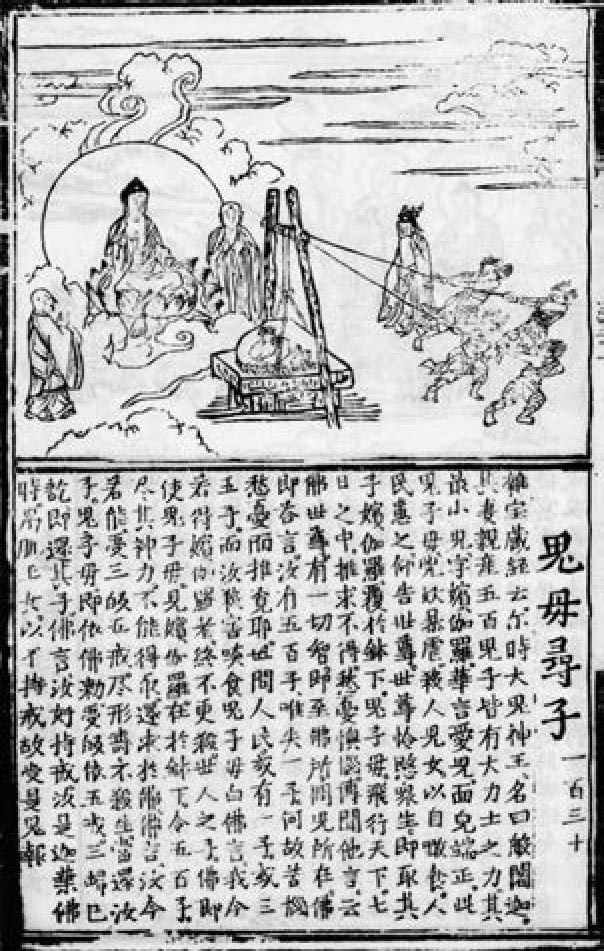 鬼母尋子 一百三十
雜宝藏經云尒時大鬼神王名曰般闍迦
其妻親產五百鬼子皆有大力士之力其
最小兒字嬪伽羅華言愛兒面皃端正此
鬼子母兇妖暴虐殺人兒女以自噉食人
民患之仰告世尊世尊怜愍眾生即取其
子嬪伽羅覆於鉢下鬼子母飛行天下七
日之中推求不得愁憂懊惱傳聞他言云
佛世尊有一切智即至佛所問兒所在佛
即荅言汝有五百子唯失一子何故苦惱
愁憂而推覓耶世間人民或有一子或三
五子而汝殺害噉食鬼子母白佛言我今
若得嬪伽羅者終不更殺世人之子佛即
使鬼子母見嬪伽羅在於鉢下令五百子
尽其神力不能得取還求於佛佛言汝今
若能受三皈五戒尽形壽不殺生當還汝
子鬼子母即依佛勑受皈依五戒三歸已
訖即還其子佛言汝好持戒汝是迦葉佛
時王女以不持戒故受是鬼報